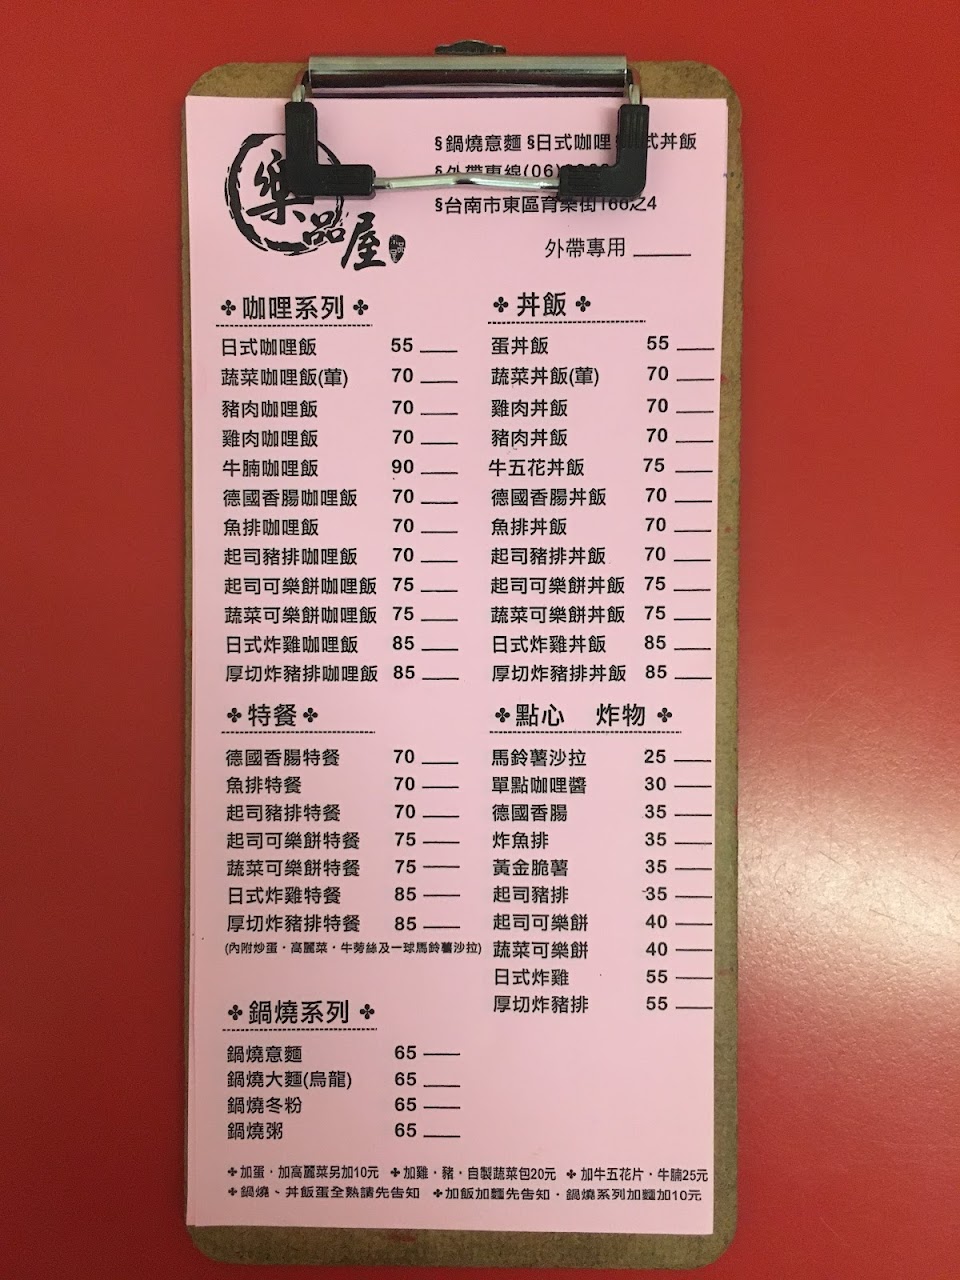 樂品屋
§鍋燒意麵 §日式咖哩 式丼飯
§外帶專線(06)
§台南市東區育樂街166之4
外帶專用
✤ 咖哩系列 ✤
日式咖哩飯 55
蔬菜咖哩飯(葷) 70
豬肉咖哩飯 70
雞肉咖哩飯 70
牛腩咖哩飯 90
德國香腸咖哩飯 70
魚排咖哩飯 70
起司豬排咖哩飯 70
起司可樂餅咖哩飯 75
蔬菜可樂餅咖哩飯 75
日式炸雞咖哩飯 85
厚切炸豬排咖哩飯 85
✤ 丼飯 ✤
蛋丼飯 55
蔬菜丼飯(葷) 70
雞肉丼飯 70
豬肉丼飯 70
牛五花丼飯 75
德國香腸丼飯 70
魚排丼飯 70
起司豬排丼飯 70
起司可樂餅丼飯 75
蔬菜可樂餅丼飯 75
日式炸雞丼飯 85
厚切炸豬排丼飯 85
✤ 特餐 ✤
德國香腸特餐 70
魚排特餐 70
起司豬排特餐 70
起司可樂餅特餐 75
蔬菜可樂餅特餐 75
日式炸雞特餐 85
厚切炸豬排特餐 85
(內附炒蛋·高麗菜·牛蒡絲及一球馬鈴薯沙拉)
✤ 點心 炸物 ✤
馬鈴薯沙拉 25
單點咖哩醬 30
德國香腸 35
炸魚排 35
黃金脆薯 35
起司豬排 35
起司可樂餅 40
蔬菜可樂餅 40
日式炸雞 55
厚切炸豬排 55
✤ 鍋燒系列 ✤
鍋燒意麵 65
鍋燒大麵(烏龍) 65
鍋燒冬粉 65
鍋燒粥 65
✤ 加蛋·加高麗菜另加10元 ✤ 加雞·豬·自製蔬菜包20元 ✤ 加牛五花片·牛腩25元
✤ 鍋燒、丼飯蛋全熟請先告知 ✤加飯加麵先告知·鍋燒系列加麵加10元